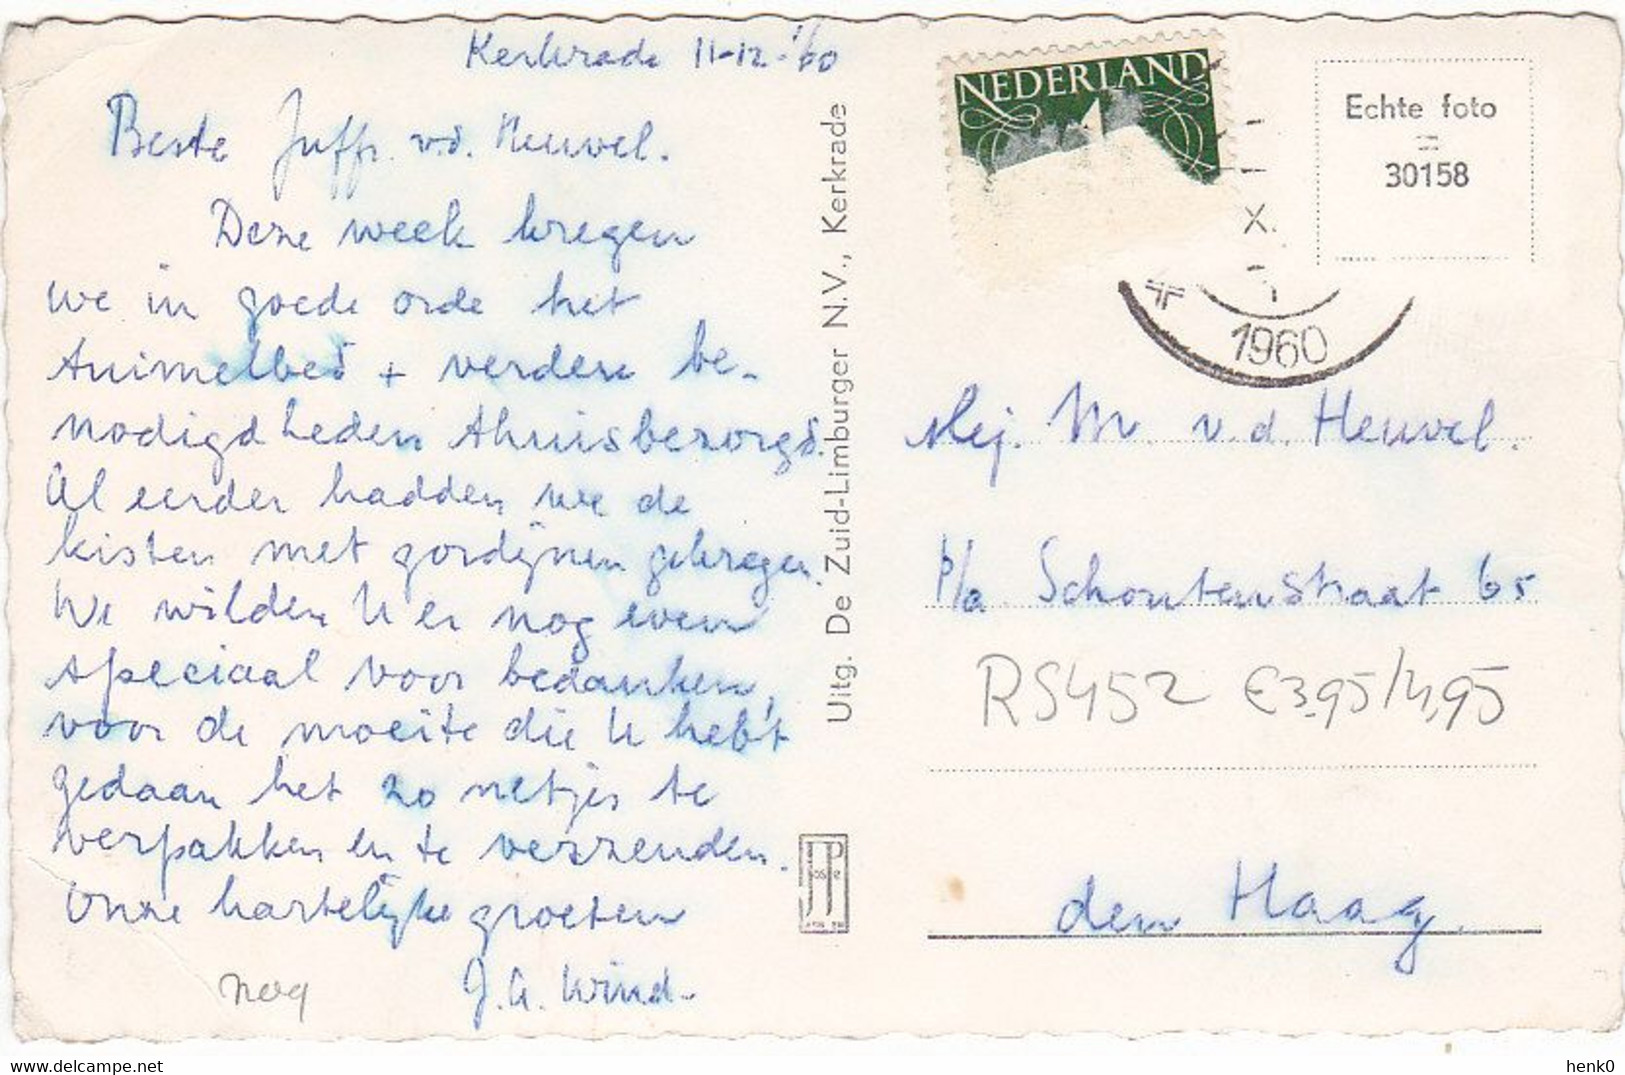 Kerkrade 11-12-'60
Beste Juffr. v.d. Heuvel.
Deze week kregen
we in goede orde het
Animelbed + verdere be-
nodigdheden thuisbezorgd.
Al eerder hadden we de
kisten met gordijnen gekregen.
We wilden U er nog even
speciaal voor bedanken,
voor de moeite die U hebt
gedaan het zo netjes te
verpakken en te verzenden.
Onze hartelijke groeten
J. G. Wind.
nog
Uitg. De Zuid-Limburger N.V., Kerkrade
JosPe
NEDERLAND
X.
1960
Echte foto
=
30158
Mej. M. v.d. Heuvel.
p/a Schoutenstraat 65
RS452 €3,95/4,95
den Haag.
henk0